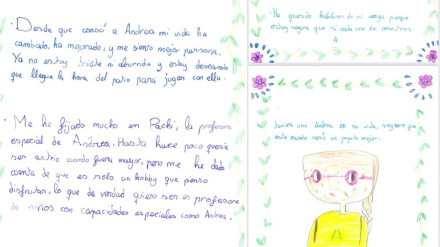 · Desde que conocí a Andrea mi vida ha
cambiado, ha mejorado, y me siento mejor persona.
Ya no estoy triste ni aburrida y estoy deseando
que llegue la hora del patio para jugar con ella.
· Me he fijado mucho en Pachi, la profesora
especial de Andrea. Hasta hace poco quería
ser actriz cuando fuera mayor, pero me he dado
cuenta de que es solo un hobby que pienso
disfrutar, lo que de verdad quiero ser es profesora
de niños con capacidades especiales como Andrea.
· He querido hablaros de mi amiga porque
estoy segura que si cada uno de nosotros
4
tuviera una Andrea en su vida, seguro que
este mundo sería un poquito mejor.
A